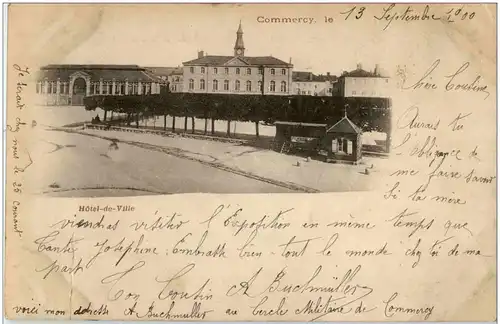 Commercy, le 13 Septembre 1900
Chère Cousine,
Aurais tu
l'obligeance de
me faire savoir
Si ta mère
Hôtel-de-Ville
viendras visiter l'Exposition en même temps que
Tante Joséphine. Embrasse bien tout le monde chez toi de ma
part
Ton Cousin A Buchmüller
voici mon adresse A Buchmüller au Cercle Militaire de Commercy
Je serai chez nous le 25 Courant